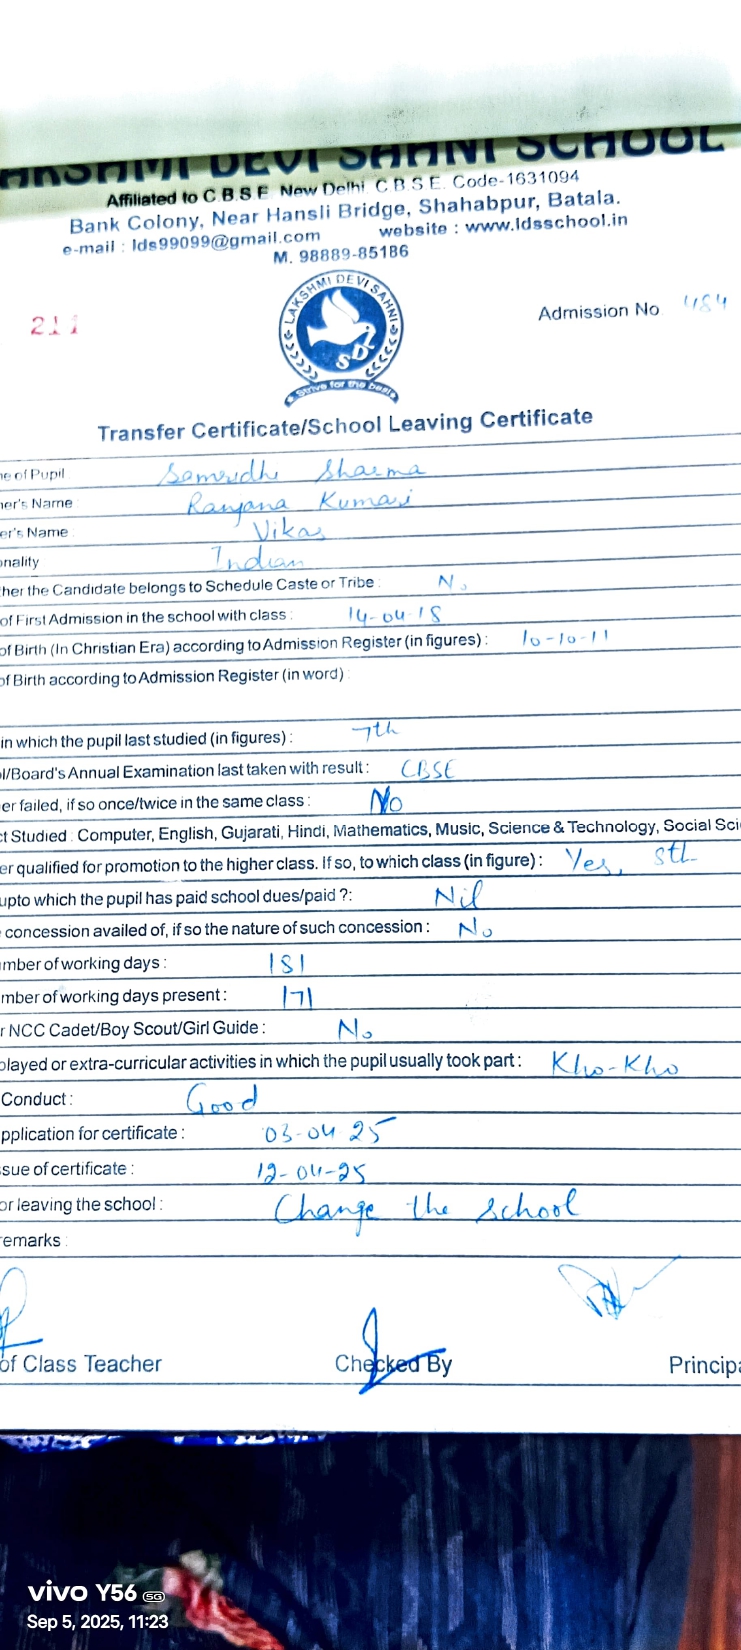 LAKSHMI DEVI SAHNI SCHOOL
Affiliated to C.B.S.E. New Delhi, C.B.S.E. Code-1631094
Bank Colony, Near Hansli Bridge, Shahabpur, Batala.
e-mail : lds99099@gmail.com website : www.ldsschool.in
M. 98889-85186
LAKSHMI DEVI SAHNI
SDL
Strive for the best
211
Admission No 484
Transfer Certificate/School Leaving Certificate
e of Pupil Samridhi Sharma
er's Name Ranjana Kumari
er's Name Vikas
onality Indian
her the Candidate belongs to Schedule Caste or Tribe : No
of First Admission in the school with class : 14-04-18
of Birth (In Christian Era) according to Admission Register (in figures) : 10-10-11
of Birth according to Admission Register (in word) :
in which the pupil last studied (in figures) : 7th
l/Board's Annual Examination last taken with result : CBSE
er failed, if so once/twice in the same class : No
ct Studied : Computer, English, Gujarati, Hindi, Mathematics, Music, Science & Technology, Social Sci
er qualified for promotion to the higher class. If so, to which class (in figure) : Yes, 8th
upto which the pupil has paid school dues/paid ?: Nil
concession availed of, if so the nature of such concession : No
mber of working days : 181
mber of working days present : 171
r NCC Cadet/Boy Scout/Girl Guide : No
played or extra-curricular activities in which the pupil usually took part : Kho-Kho
Conduct : Good
pplication for certificate : 03-04-25
ssue of certificate : 12-04-25
or leaving the school : Change the school
emarks :
of Class Teacher Checked By Principa
vivo Y56 5G
Sep 5, 2025, 11:23